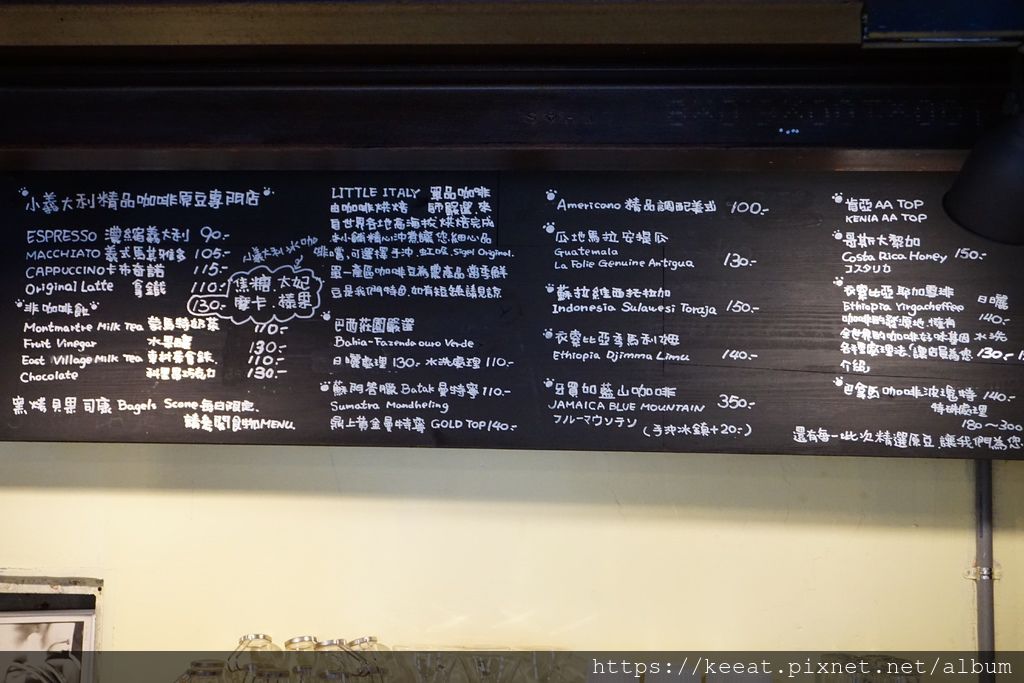 小義大利精品咖啡原豆專門店
ESPRESSO 濃縮義大利 90.-
MACCHIATO 義式馬其雅多 105.-
CAPPUCCINO 卡布奇諾 115.-
Original Latte 拿鐵 110.-
焦糖.太妃
摩卡.榛果
130.-
非咖啡飲
Montmartre Milk Tea 蒙馬特奶茶 110.-
Fruit Vinegar 水果醋 130.-
East Village Milk Tea 110.-
Chocolate 巧克力 130.-
窯烤貝果 司康 Bagels Scone 每日限定.
請參閱食物MENU.
LITTLE ITALY 單品咖啡
由咖啡烘焙 師嚴選.來
自世界各地高海拔烘焙完成
本小舖精心沖煮讓您細心品
嚐,可選擇手沖.虹吸.Sigel Original.
單一產區咖啡豆為愛產品當季鮮
豆是我們特色.如有短缺請見諒
巴西莊園嚴選
Bahia-Fazenda ouro Verde
日曬處理 130.- 水洗處理 110.-
蘇門答臘 Batak 曼特寧 110.-
Sumatra Mandheling
鼎上黃金曼特寧 GOLD TOP 140.-
Americano 精品調配美式 100.-
瓜地馬拉安提瓜
Guatemala
La Folie Genuine Antigua 130.-
蘇拉維西托拉加
Indonesia Sulawesi Toraja 150.-
衣索比亞季馬利姆
Ethiopia Djimma Limu 140.-
牙買加藍山咖啡
JAMAICA BLUE MOUNTAIN 350.-
ブルーマウンテン
(手沖冰鎮+20.-)
肯亞 AA TOP
KENIA AA TOP
哥斯大黎加
Costa Rica Honey 150.-
コスタリカ
衣索比亞耶加雪菲
Ethiopia Yirgacheffee 日曬
咖啡的發源地.擁有 140.-
全世界的咖啡好味基因 水洗
各種處理法.讓店長為您 130.-
介紹,
巴拿馬咖啡波逵特 140.-
特殊處理
180~300
還有每一批次精選原豆.讓我們為您
https://keeat.pixnet.net/album